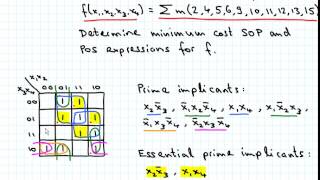 f(x₁,x₂,x₃,x₄) = ∑ m(2,4,5,6,9,10,11,12,13,15)
Determine minimum cost SOP and
POS expressions for f.
x₁x₂
x₃x₄ 00 01 11 10
00 1 1
01 1 1 1
11 1 1
10 1 1 1
Prime implicants:
x₂x̄₃, x̄₁x₂x̄₄, x₁x₄, x₁x̄₂x₃,
x̄₁x₃x̄₄, x̄₂x₃x̄₄
Essential prime implicants:
x₂x̄₃, x₁x₄